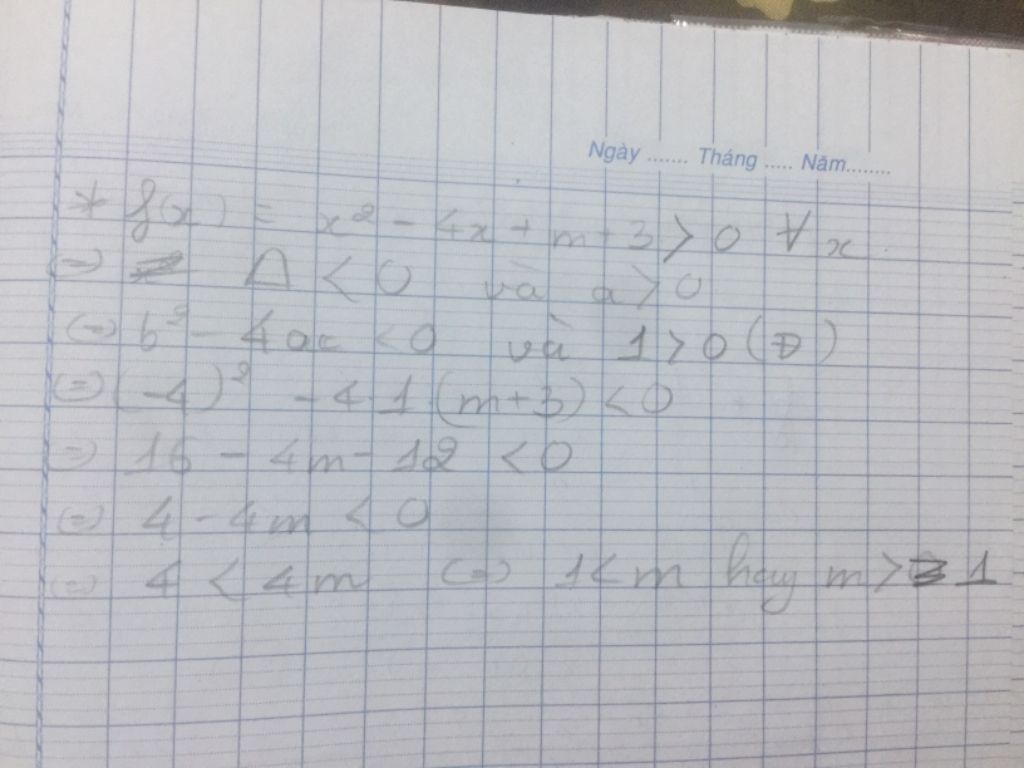 Ngày ....... Tháng ..... Năm........
* f(x) = x² - 4x + m + 3 > 0 ∀x
(=) Δ < 0 và a > 0
(=) b² - 4ac < 0 và 1 > 0 (Đ)
(=) (-4)² - 4.1(m+3) < 0
(=) 16 - 4m - 12 < 0
(=) 4 - 4m < 0
(=) 4 < 4m (=) 1 < m hay m > 1